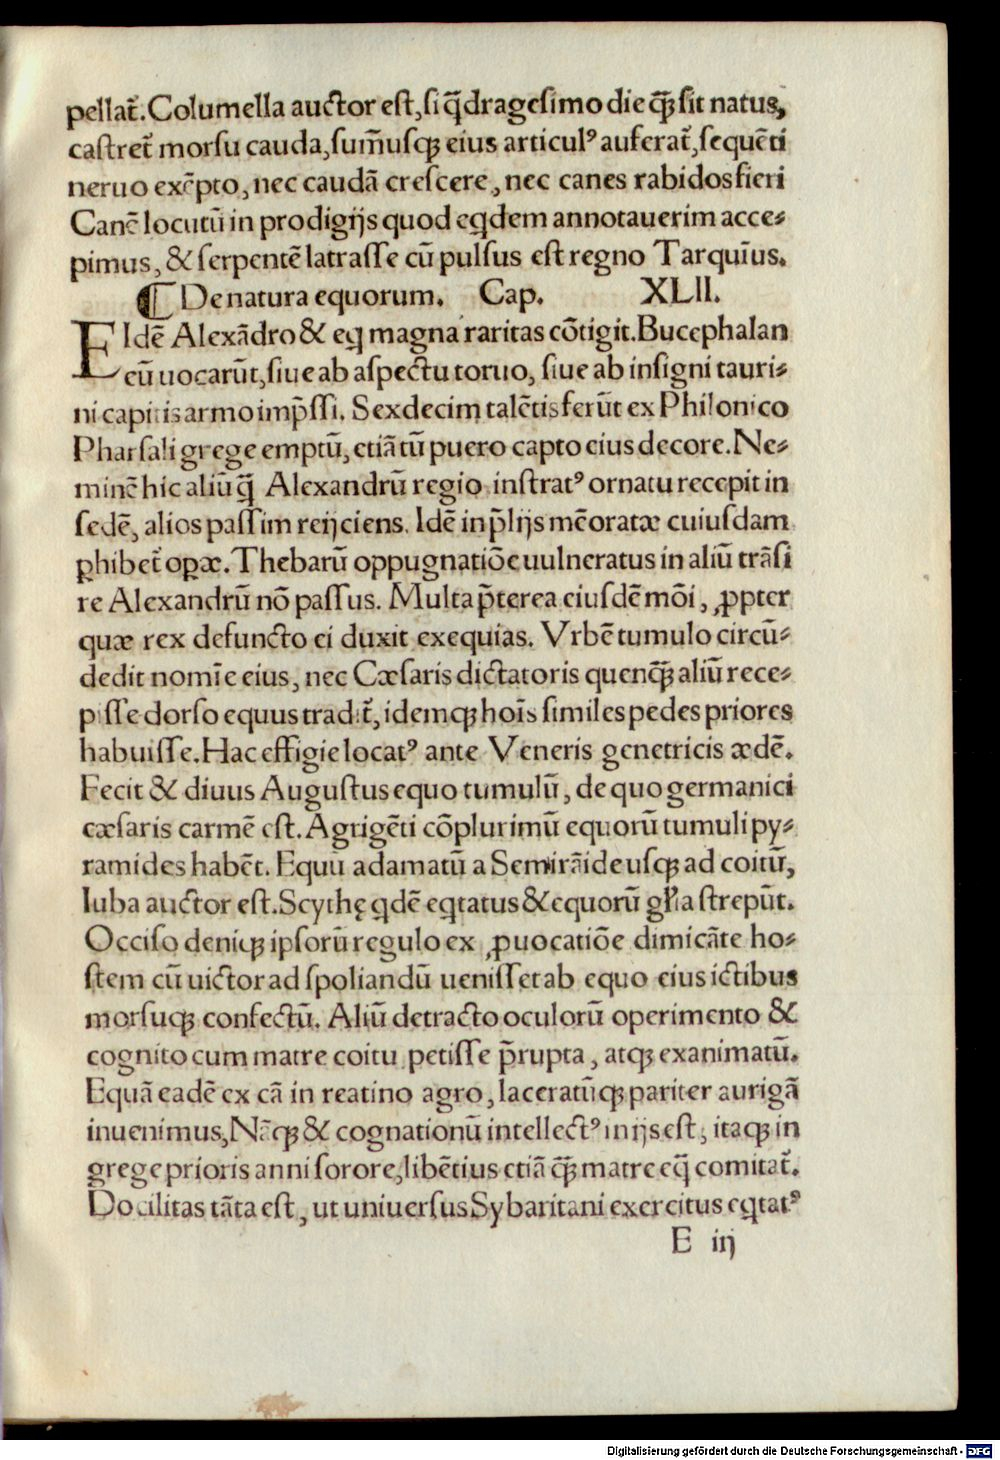 pellat᷑.Columella auctor est,si q̃dragesimo die q̃ꝫ sit natus,
castret᷑ morsu cauda,sum̃usqꝫ eius articulꝰ auferat᷑,sequẽti
neruo exẽpto,nec caudã crescere,nec canes rabidos fieri
Canẽ locutũ in prodigijs quod eqdem annotauerim acce-
pimus,& serpentẽ latrasse cũ pulsus est regno Tarquĩus.
¶ De natura equorum. Cap. XLII.
EIdẽ Alexãdro & eq magna raritas cõtigit.Bucephalan
cũ uocarũt,siue ab aspectu toruo,siue ab insigni tauri-
ni capitis armo imp̃ssi. Sexdecim talẽtis ferũt ex Philonico
Pharsali grege emptũ,etiã tũ puero capto eius decore.Ne-
minẽ hic aliũ q̃ Alexandrũ regio instratꝰ ornatu recepit in
sedẽ,alios passim reijciens. Idẽ in p̃lijs mẽoratæ cuiusdam
ꝑhibet᷑ oꝑæ.Thebarũ oppugnatiõe uulneratus in aliũ trãsi
re Alexandrũ nõ passus. Multa p̃terea eiusdẽ mõi,ꝓpter
quæ rex defuncto ei duxit exequias.Vrbẽ tumulo circũ-
dedit nomĩe eius,nec Cæsaris dictatoris quenq̃ꝫ aliũ rece-
pisse dorso equus tradit᷑,idemqꝫ hoĩs similes pedes priores
habuisse.Hac effigie locatꝰ ante Veneris genetricis ædẽ.
Fecit & diuus Augustus equo tumulũ,de quo germanici
cæsaris carmẽ est.Agrigẽti cõplurimũ equorũ tumuli py-
ramides habẽt.Equu adamatũ a Semirãide usqꝫ ad coitũ,
Iuba auctor est.Scythę qdẽ eqtatus & equorũ gl̃ia strepũt.
Occiso deniqꝫ ipsorũ regulo ex ꝓuocatiõe dimicãte ho-
stem cũ uictor ad spoliandũ uenisset ab equo eius ictibus
morsuqꝫ confectũ. Aliũ detracto oculorũ operimento &
cognito cum matre coitu petisse p̃rupta,atqꝫ exanimatũ.
Equã eadẽ ex cã in reatino agro,laceratũqꝫ pariter aurigã
inuenimus,Nãqꝫ & cognationũ intellectꝰ in ijs est,itaqꝫ in
grege prioris anni sorore,libẽtius etiã q̃ꝫ matre eq̃ comitat᷑.
Docilitas tãta est,ut uniuersus Sybaritani exercitus eqtatꝰ
E iij
Digitalisierung gefördert durch die Deutsche Forschungsgemeinschaft - DFG